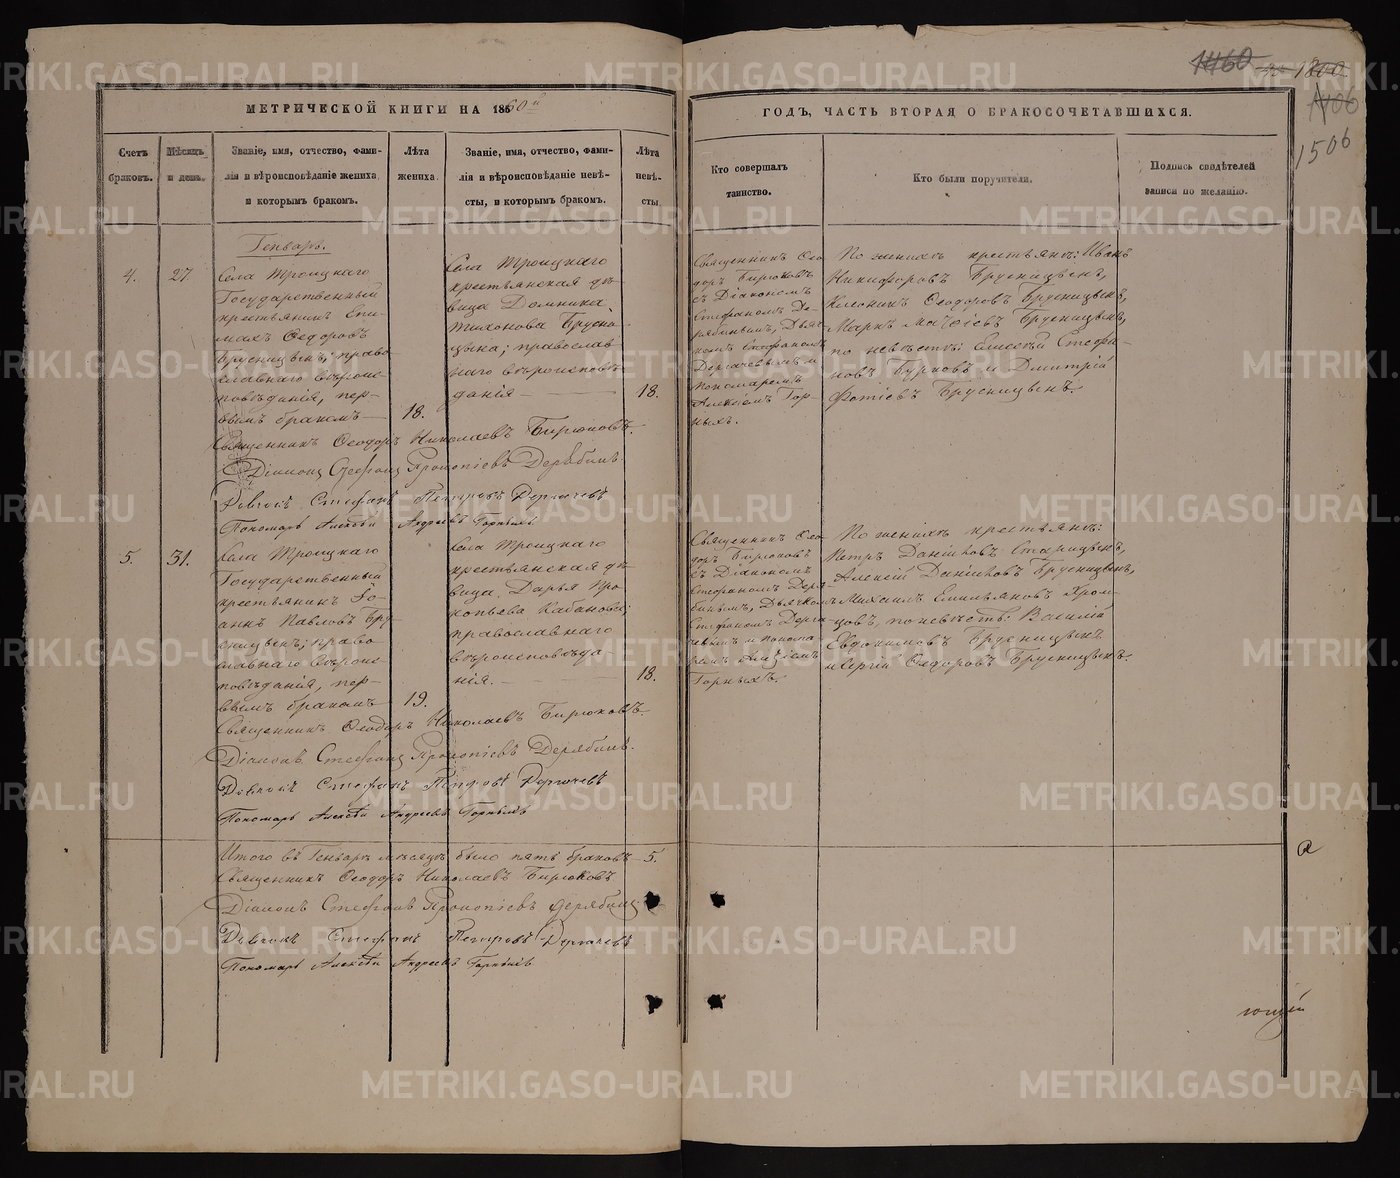 МЕТРИЧЕСКОЙ КНИГИ НА 1860й
ГОДЪ, ЧАСТЬ ВТОРАЯ О БРАКОСОЧЕТАВШИХСЯ.
1460
1800
1506
Счетъ браковъ.
Мѣсяцъ и день.
Званіе, имя, отчество, фами-
лія и вѣроисповѣданіе жениха
и которымъ бракомъ.
Лѣта жениха.
Званіе, имя, отчество, фами-
лія и вѣроисповѣданіе невѣ-
сты, и которымъ бракомъ.
Лѣта невѣ-
сты.
Кто совершалъ
таинство.
Кто были поручители.
Подпись свидѣтелей
записи по желанію.
Генварь.
4.
27
Села Троицкаго
Государственный
крестьянинъ Епи-
махъ Ѳедоровъ
Брусницынъ; право-
славнаго вѣроис-
повѣданія, пер-
вымъ бракомъ
18.
Села Троицкаго
крестьянская дѣ-
вица Домника
Тихонова Брусни-
цына; православ-
наго вѣроисповѣ-
данія
18.
Священникъ Ѳео-
доръ Бирюковъ
съ Діакономъ
Стефаномъ Де-
рябинымъ, Дьяч-
комъ Стефаномъ
Дергачевымъ и
пономаремъ
Алексіемъ Гор-
ныхъ.
По женихѣ крестьяне: Иванъ
Никифоровъ Брусницынъ,
Ѳеодоровъ Брусницынъ,
Маркъ Матѳіевъ Брусницынъ,
по невѣстѣ: Елисей Стефа-
новъ Бурковъ и Димитрій
Фотіевъ Брусницынъ.
Священникъ Ѳеодоръ Николаевъ Бирюковъ.
Діаконъ Стефанъ Прокопіевъ Дерябинъ.
Дьячокъ Стефанъ Петровъ Дергачевъ
Пономарь Алексѣй Андреевъ Горныхъ
5.
31.
Села Троицкаго
Государственный
крестьянинъ Іо-
аннъ Павловъ Бру-
сницынъ; право-
славнаго вѣроис-
повѣданія, пер-
вымъ бракомъ
19.
Села Троицкаго
крестьянская дѣ-
вица Дарья Про-
копьева Кабанова;
православнаго
вѣроисповѣда-
нія.
18.
Священникъ Ѳео-
доръ Бирюковъ
съ Діакономъ
Стефаномъ Деря-
бинымъ, Дьячкомъ
Стефаномъ Дерга-
чевымъ и понома-
ремъ Алексіемъ
Горныхъ.
По женихѣ крестьяне:
Петръ Даніиловъ Старицынъ,
Алексій Даніиловъ Брусницынъ,
Михаилъ Емильяновъ
по невѣстѣ: Василій
Евдокимовъ Брусницынъ
и Сергій Ѳедоровъ Брусницынъ.
Священникъ Ѳеодоръ Николаевъ Бирюковъ.
Діаконъ Стефанъ Прокопіевъ Дерябинъ.
Дьячокъ Стефанъ Петровъ Дергачевъ
Пономарь Алексѣй Андреевъ Горныхъ
Итого въ Генварѣ мѣсяцѣ было пять браковъ 5.
Священникъ Ѳеодоръ Николаевъ Бирюковъ
Діаконъ Стефанъ Прокопіевъ Дерябинъ
Дьячокъ Стефанъ Петровъ Дергачевъ
Пономарь Алексѣй Андреевъ Горныхъ
ющій
METRIKI.GASO-URAL.RU